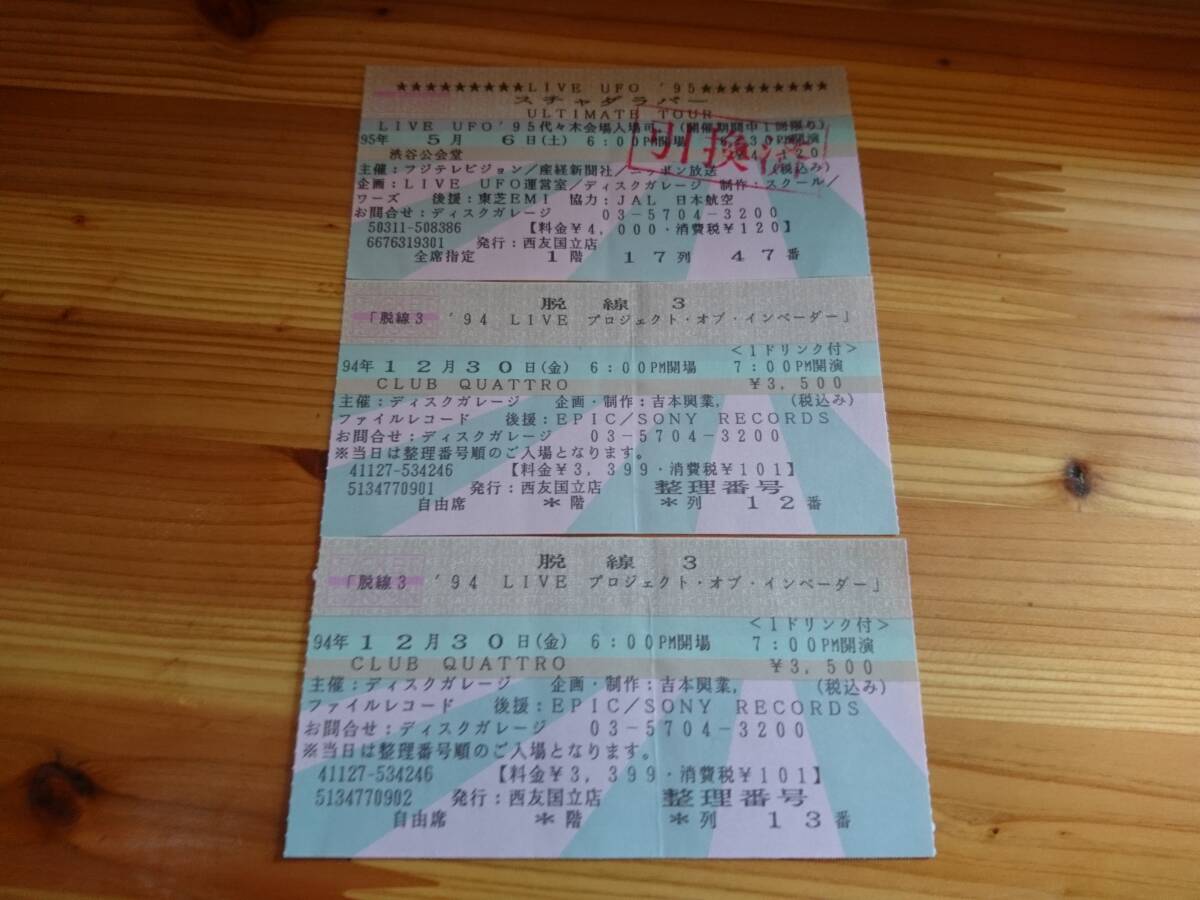 ★★★★★★★★★LIVE UFO '95★★★★★★★★★
スチャダラパー
ULTIMATE TOUR
LIVE UFO'95代々木会場入場可 (開催期間中1回限り)
95年 5月 6日(土) 6:00PM開場 6:30PM開演
渋谷公会堂 ¥4,120
引換済
主催:フジテレビジョン/産経新聞社/ニッポン放送 (税込み)
企画:LIVE UFO運営室/ディスクガレージ 制作:スクール/
ワーズ 後援:東芝EMI 協力:JAL 日本航空
お問合せ:ディスクガレージ 03-5704-3200
50311-508386 【料金¥4,000・消費税¥120】
6676319301 発行:西友国立店
全席指定 1階 17列 47番
脱線3
「脱線3 '94 LIVE プロジェクト・オブ・インベーダー」
<1ドリンク付>
94年12月30日(金) 6:00PM開場 7:00PM開演
CLUB QUATTRO ¥3,500
主催:ディスクガレージ 企画・制作:吉本興業, (税込み)
ファイルレコード 後援:EPIC/SONY RECORDS
お問合せ:ディスクガレージ 03-5704-3200
※当日は整理番号順のご入場となります。
41127-534246 【料金¥3,399・消費税¥101】
5134770901 発行:西友国立店 整理番号
自由席 *階 *列 12番
脱線3
「脱線3 '94 LIVE プロジェクト・オブ・インベーダー」
<1ドリンク付>
94年12月30日(金) 6:00PM開場 7:00PM開演
CLUB QUATTRO ¥3,500
主催:ディスクガレージ 企画・制作:吉本興業, (税込み)
ファイルレコード 後援:EPIC/SONY RECORDS
お問合せ:ディスクガレージ 03-5704-3200
※当日は整理番号順のご入場となります。
41127-534246 【料金¥3,399・消費税¥101】
5134770902 発行:西友国立店 整理番号
自由席 *階 *列 13番